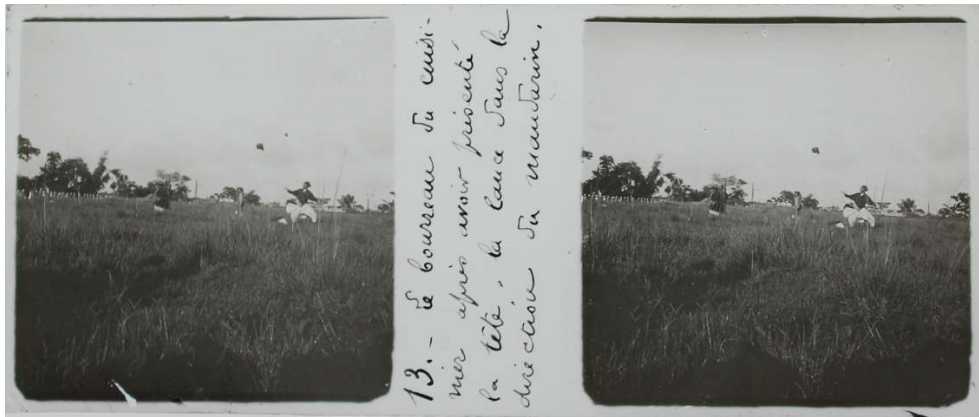 13. - Le bourreau du cuisi-
nier après avoir présenté
la tête, la lance dans la
direction du mandarin.